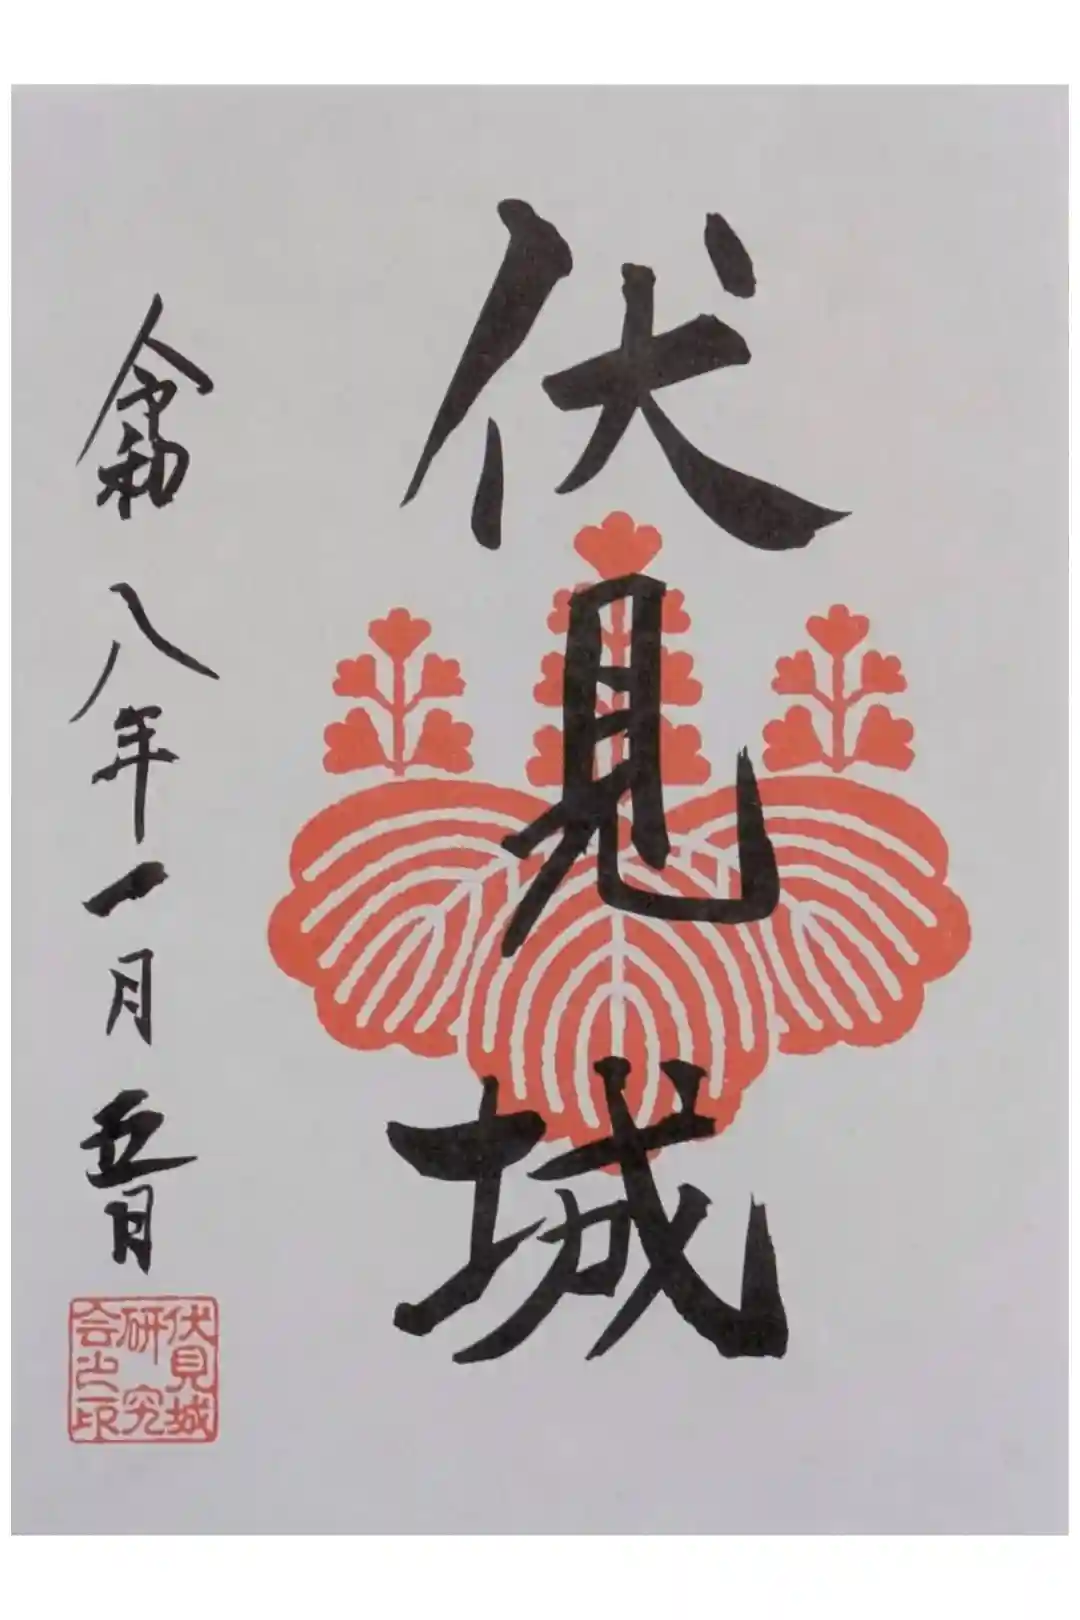 伏見城
令和八年一月五日
伏見城
研究
会之印